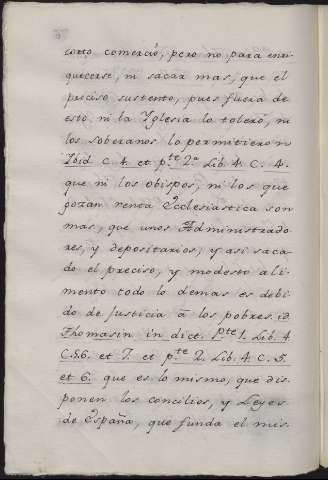 corto comercio, pero no para enri
quecerse, ni sacar mas, que el
preciso sustento, pues fuera de
esto ni la Yglesia lo toleró, ni
los soberanos lo permitieron
Ibid C. 4. et p.te 2.a Lib. 4. C. 4.
que ni los obispos, ni los que
gozan renta Ecclesiastica son
mas, que unos Administrado
res, y depositarios, y asi saca
do el preciso, y modesto ali-
mento todo lo demas es debi
do de Justicia â los pobres. id.
Thomasin in dict. p.te 1. Lib. 4
C. 5. 6. et 7. et p.te 2. Lib. 4. C. 5.
et 6. que es lo mismo, que dis-
ponen los concilios, y Leyes
de España, que funda el mis-